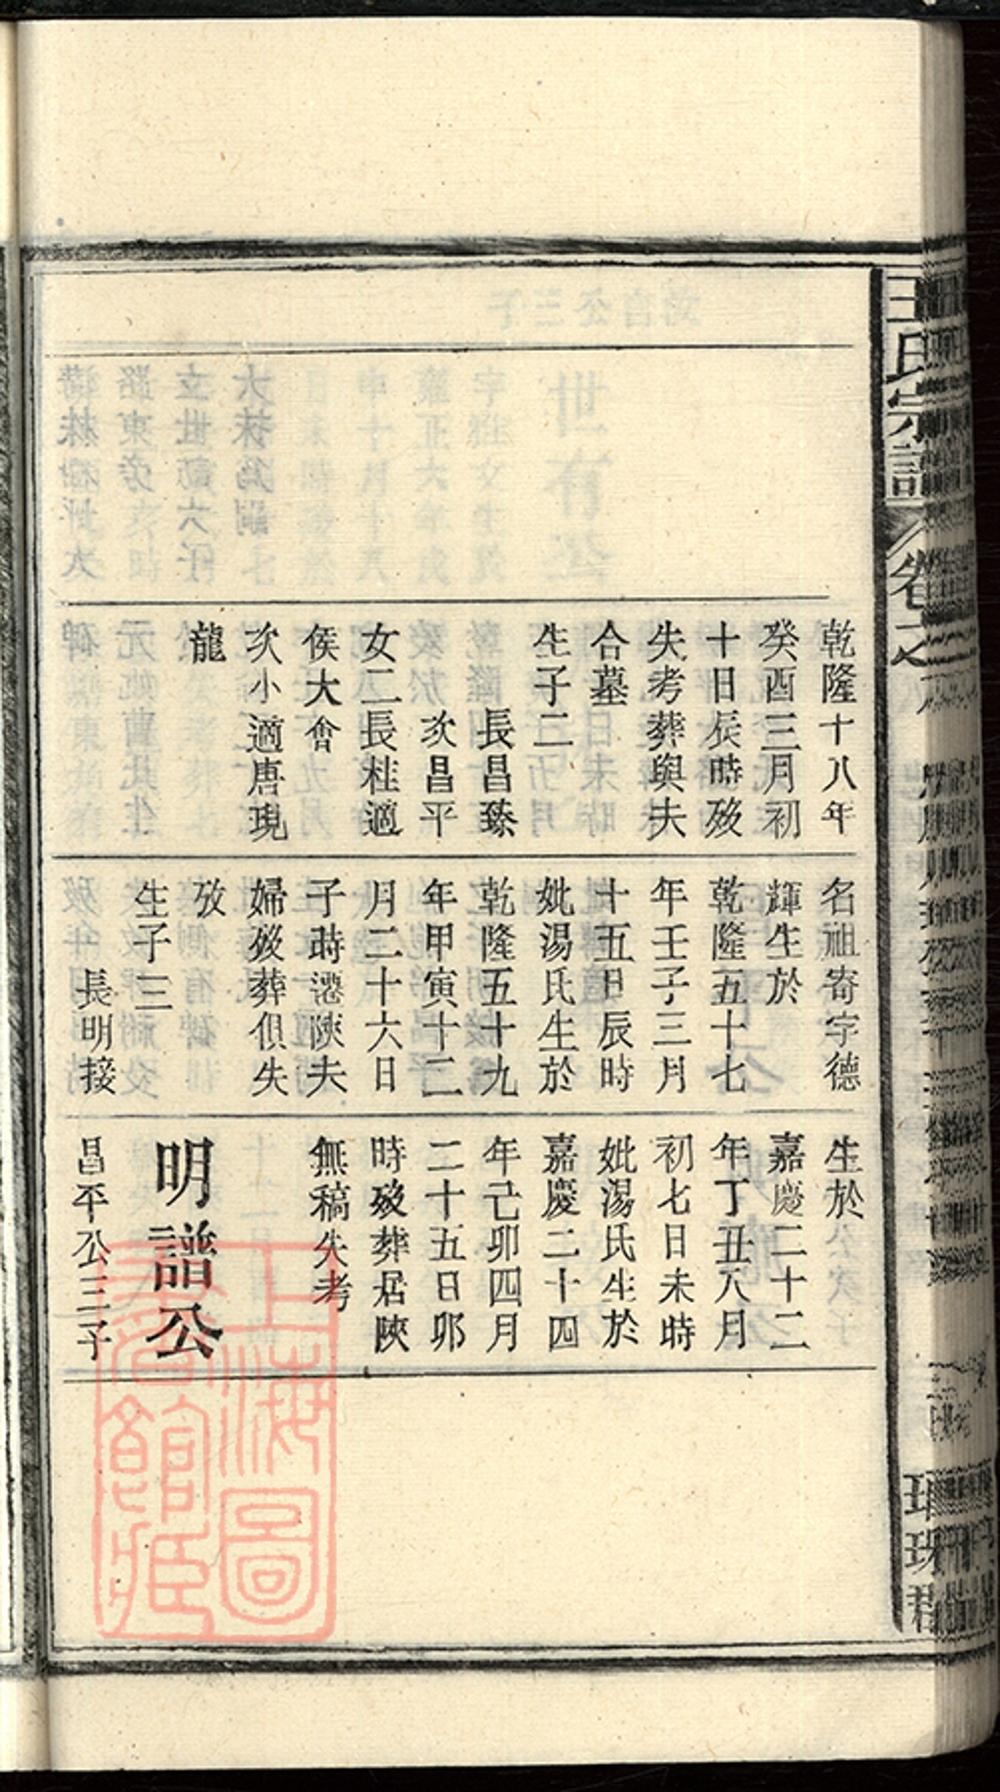 王氏宗譜
卷之
乾隆十八年
癸酉三月初
十日辰時歿
失考葬與夫
合墓
生子二
長昌臻
次昌平
女二長桂適
侯大會
次小適唐現
龍
名祖寄字德
輝生於
乾隆五十七
年壬子三月
十五日辰時
妣湯氏生於
乾隆五十九
年甲寅十二
月二十六日
子時遷陝夫
婦歿葬俱失
攷
生子三
長明接
生於
嘉慶二十二
年丁丑八月
初七日未時
妣湯氏生於
嘉慶二十四
年己卯四月
二十五日卯
時歿葬居陝
無稿失考
明譜公
昌平公三子
上海圖
書館藏